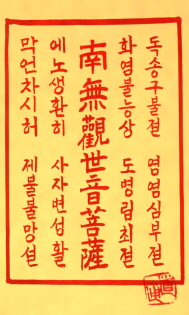 독송구불졀 염염심부졀
화염불능상 도병립최졀
南無觀世音菩薩
에노생환히 사자변성활
막언차시허 제불불망셜